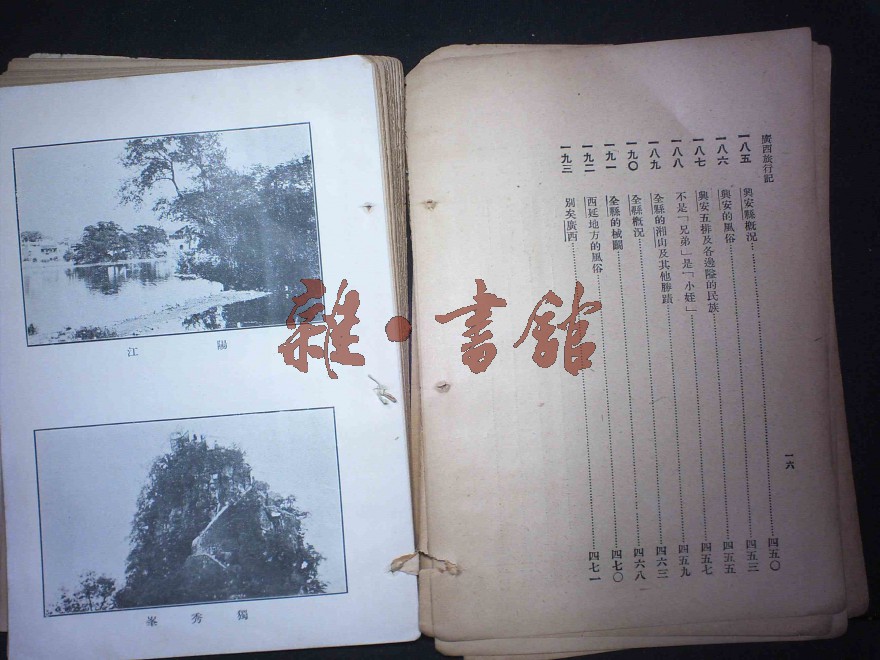 廣西旅行記
一六
一八五 興安縣概況……四五〇
一八六 興安的風俗……四五三
一八七 興安五排及各邊隘的民族……四五五
一八八 不是「兄弟」是「小姪」……四五七
一八九 全縣的湘山及其他勝蹟……四五九
一九〇 全縣概況……四六三
一九一 全縣的械鬪……四六八
一九二 西延地方的風俗……四七〇
一九三 別矣廣西……四七一
陽江
獨秀峯
雜·書館